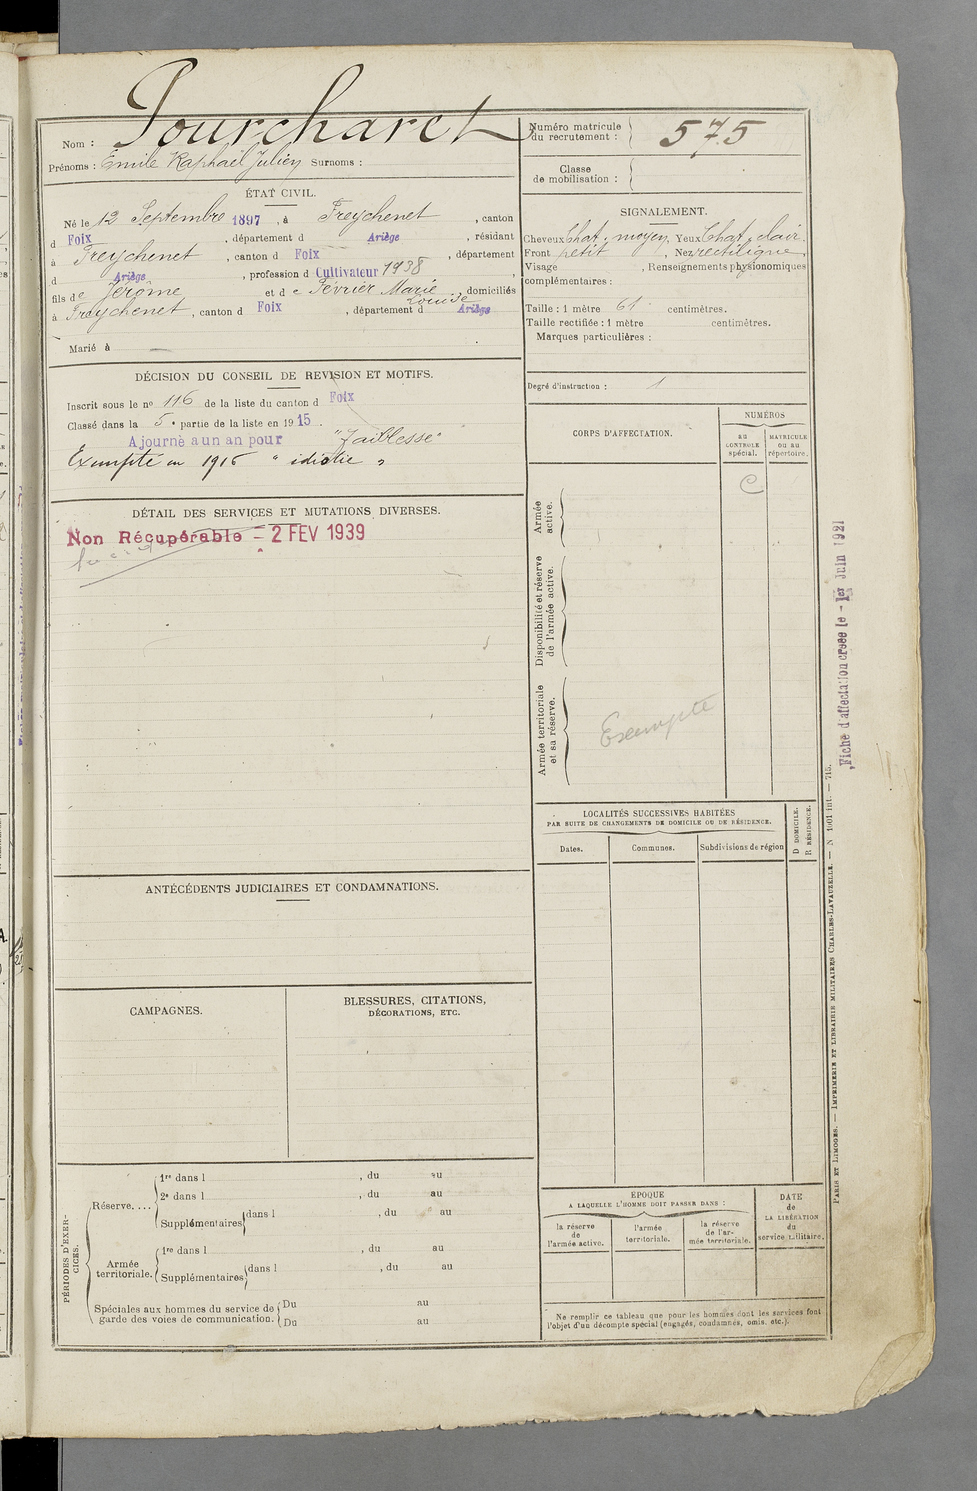 Nom : Pourcharet
Prénoms : Emile Raphaël Julien Surnoms :
Numéro matricule du recrutement : 575
Classe de mobilisation :
ÉTAT CIVIL.
Né le 12 Septembre 1897, à Freychenet, canton
d Foix, département d Ariège, résidant
à Freychenet, canton d Foix, département
d Ariège, profession d Cultivateur 1938,
fils de Jérôme et de Février Marie Louise, domiciliés
à Freychenet, canton d Foix, département d Ariège
Marié à —
DÉCISION DU CONSEIL DE REVISION ET MOTIFS.
Inscrit sous le no 116 de la liste du canton d Foix
Classé dans la 5e partie de la liste en 1915.
Ajourné à un an pour "Faiblesse"
Exempté en 1916 "idiotie"
DÉTAIL DES SERVICES ET MUTATIONS DIVERSES.
Non Récupérable - 2 FEV 1939
ANTÉCÉDENTS JUDICIAIRES ET CONDAMNATIONS.
CAMPAGNES.
BLESSURES, CITATIONS,
DÉCORATIONS, ETC.
PÉRIODES D'EXERCICES.
Réserve....
1re dans l , du au
2e dans l , du au
Supplémentaires dans l , du au
Armée territoriale.
1re dans l , du au
Supplémentaires dans l , du au
Spéciales aux hommes du service de Du au
garde des voies de communication. Du au
SIGNALEMENT.
Cheveux Chat. moyen, Yeux Chat. clair.
Front petit, Nez rectiligne
Visage , Renseignements physionomiques
complémentaires :
Taille : 1 mètre 61 centimètres.
Taille rectifiée : 1 mètre centimètres.
Marques particulières :
Degré d'instruction : 1
CORPS D'AFFECTATION.
NUMÉROS
AU CONTROLE spécial.
MATRICULE OU AU répertoire.
C
Armée active.
Disponibilité et réserve de l'armée active.
Armée territoriale et sa réserve.
Exempté
LOCALITÉS SUCCESSIVES HABITÉES
PAR SUITE DE CHANGEMENTS DE DOMICILE OU DE RÉSIDENCE.
Dates. Communes. Subdivisions de région
D DOMICILE.
R RÉSIDENCE.
ÉPOQUE
A LAQUELLE L'HOMME DOIT PASSER DANS :
la réserve de l'armée active.
l'armée territoriale.
la réserve de l'armée territoriale.
DATE de LA LIBÉRATION du service militaire.
Ne remplir ce tableau que pour les hommes dont les services font
l'objet d'un décompte spécial (engagés, condamnés, omis, etc.).
Fiche d'affectation créée le - 1er Juin 1921
PARIS ET LIMOGES. — IMPRIMERIE ET LIBRAIRIE MILITAIRES CHARLES-LAVAUZELLE. — N 1901 int. — 715.